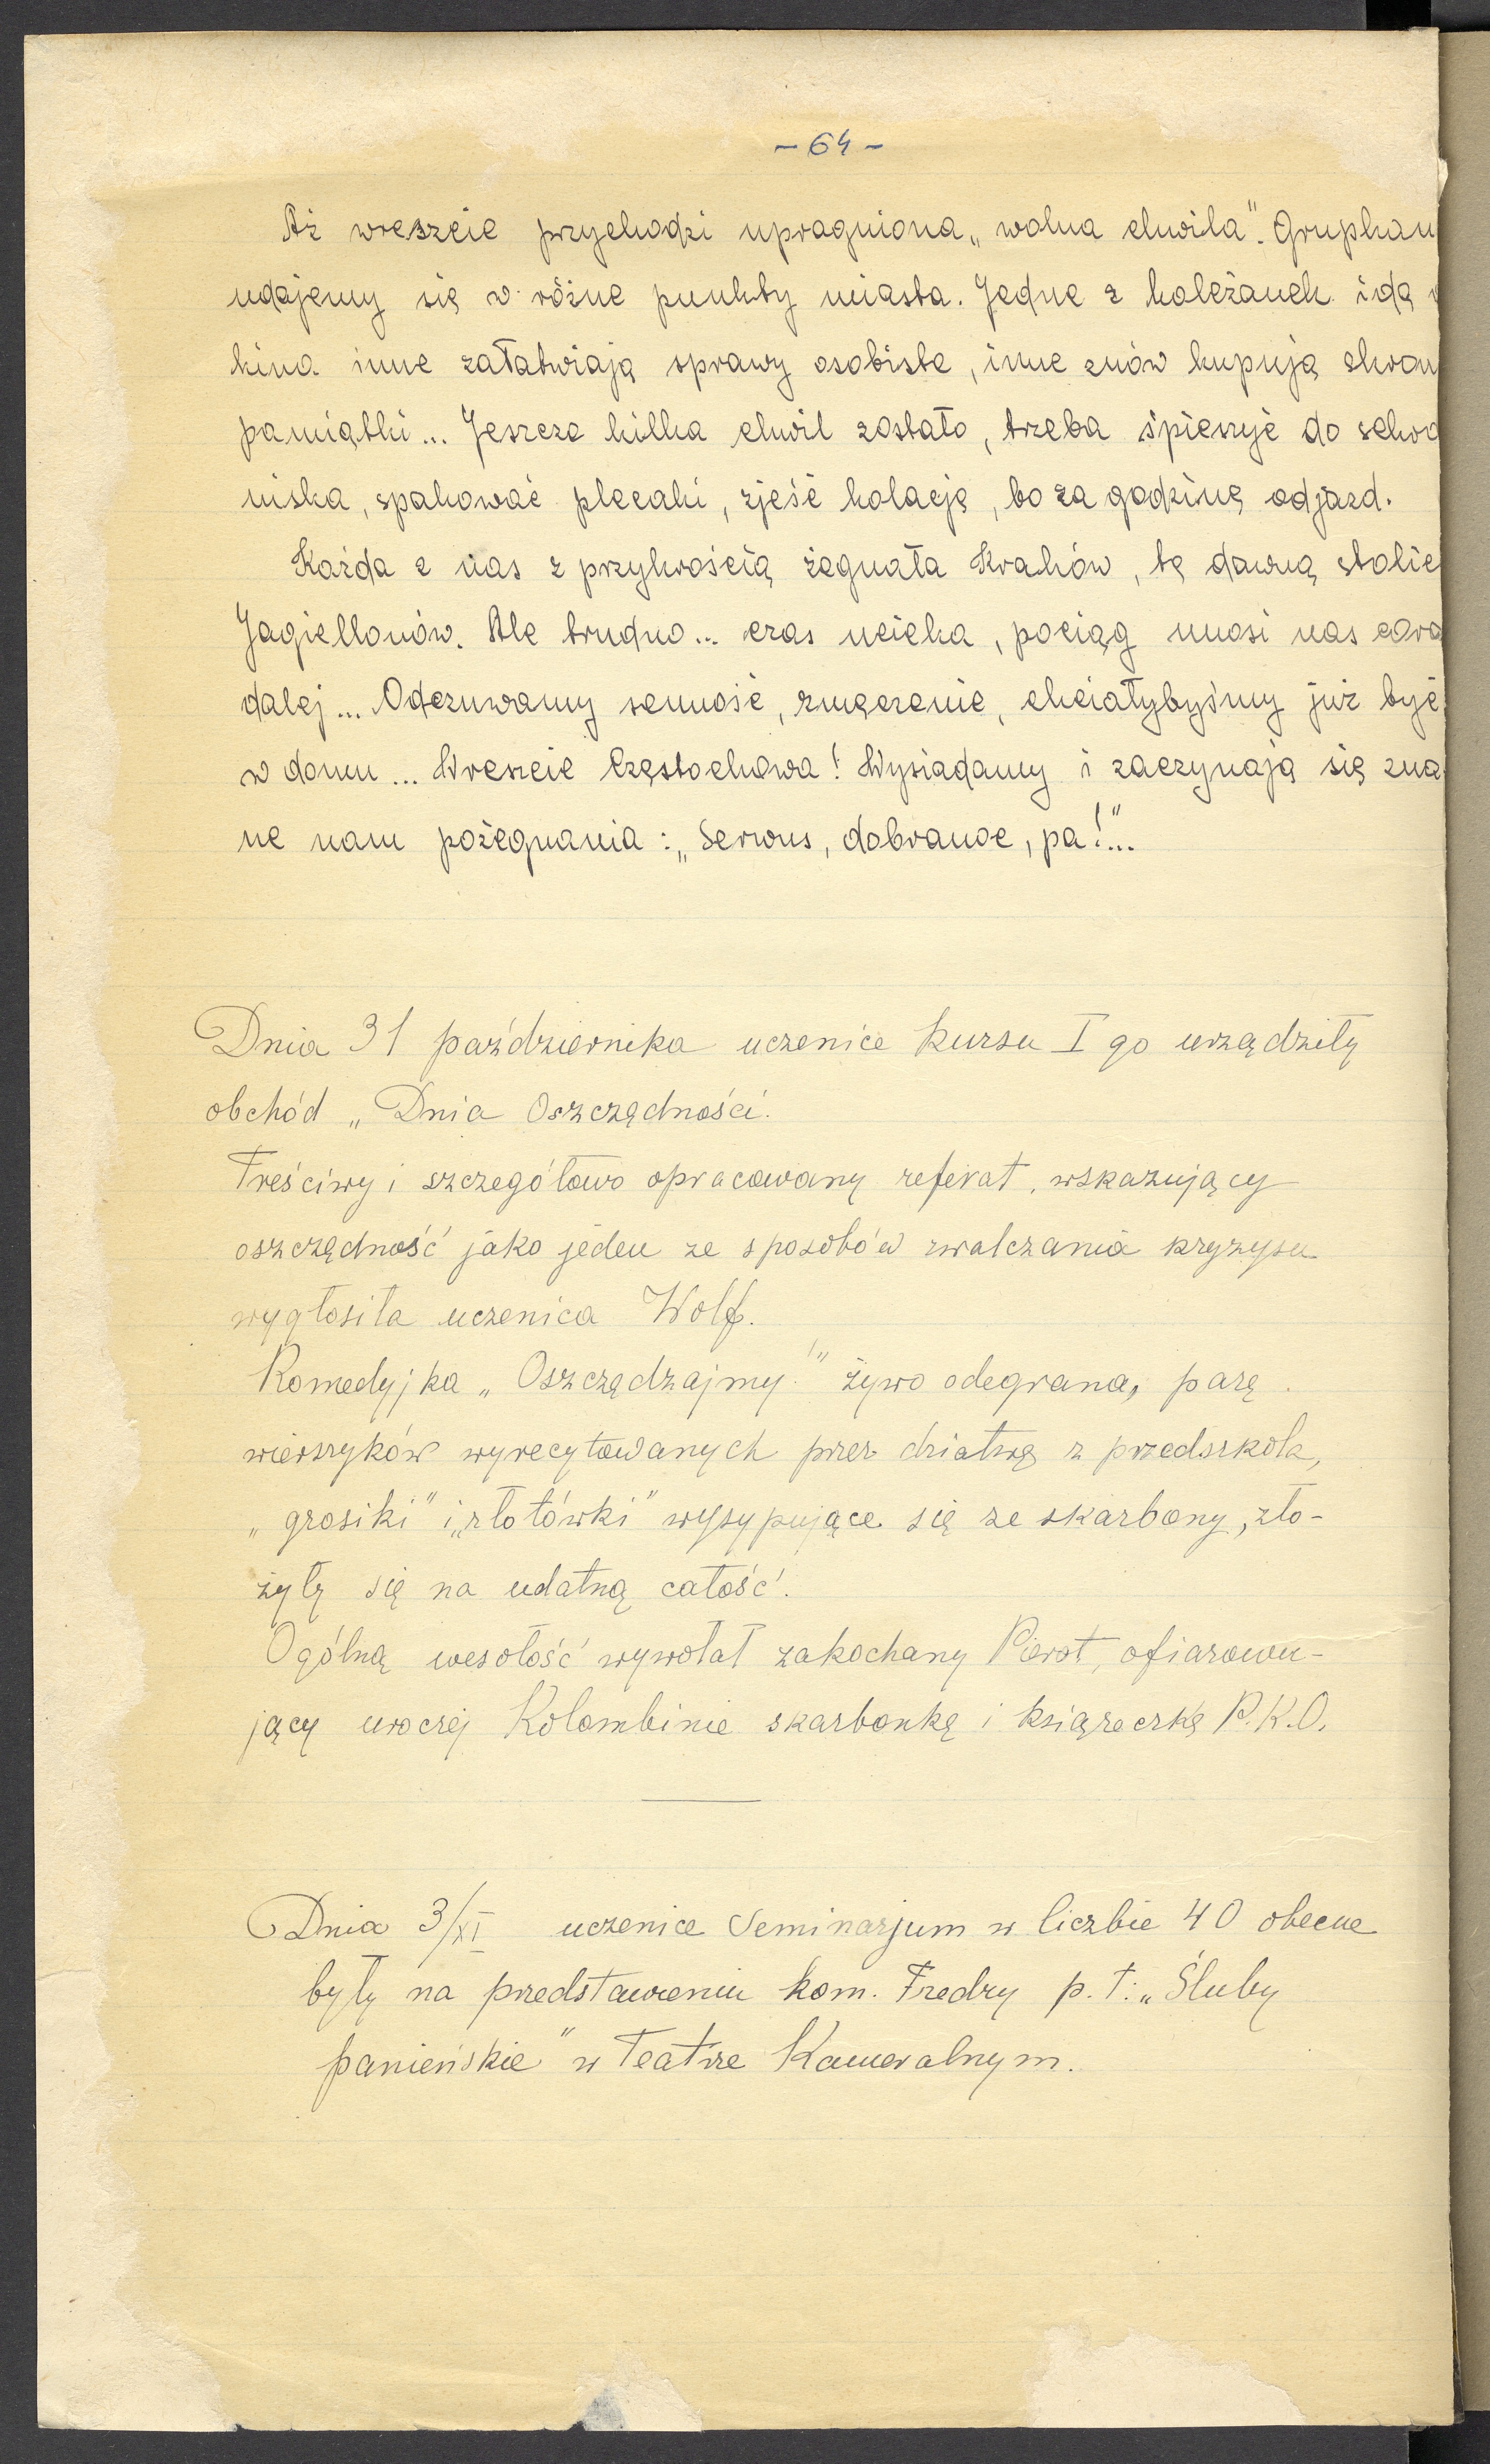 - 64 -
Aż wreszcie przychodzi upragniona „wolna chwila”. Grupkam
udajemy się w różne punkty miasta. Jedne z koleżanek idą
kina inne załatwiają sprawy osobiste, inne znów kupują skrom
pamiątki... Jeszcze kilka chwil zostało, trzeba śpieszyć do schro
niska, spakować plecaki, zjeść kolację, bo za godzinę odjazd.
Każda z nas z przykrością żegnała Kraków, tę dawną stolic
Jagiellonów. Ale trudno... czas ucieka, pociąg unosi nas cora
dalej... Odczuwamy senność, zmęczenie, chciałybyśmy już być
w domu... Wreszcie Częstochowa! Wysiadamy i zaczynają się zna
ne nam pożegnania: „Serwus, dobranoc, pa!”...
Dnia 31 października uczenice kursu I go urządziły
obchód „Dnia Oszczędności.
Treściwy i szczegółowo opracowany referat, wskazujący
oszczędność jako jeden ze sposobów zwalczania kryzysu
wygłosiła uczenica Wolf.
Komedyjka „Oszczędzajmy!” żywo odegrana, parę
wierszyków wyrecytowanych przez dziatwę z przedszkola,
„grosiki” i „złotówki” wysypujące się ze skarbony, zło-
żyły się na udatną całość.
Ogólną wesołość wywołał zakochany Pierot, ofiarowu-
jący uroczej Kolombinie skarbonkę i książeczkę P.K.O.
Dnia 3/XI uczenice Seminarjum w liczbie 40 obecne
były na przedstawieniu kom. Fredry p.t.: „Śluby
panieńskie” w Teatrze Kameralnym.